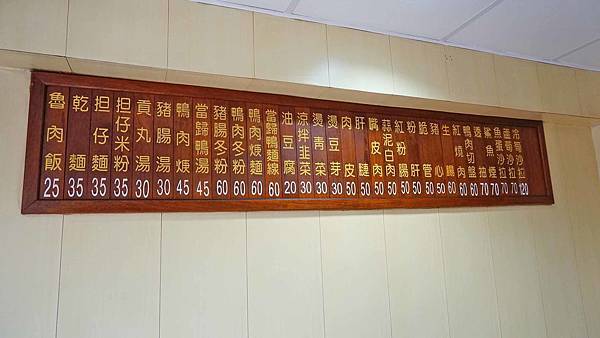 魯肉飯 25
乾麵 35
担仔麵 35
担仔米粉 35
貢丸湯 30
豬腸湯 30
鴨肉焿 45
當歸鴨湯 45
豬腸冬粉 60
鴨肉冬粉 60
鴨肉焿麵 60
當歸鴨麵線 60
油豆腐 20
涼拌韭菜 30
燙青菜 30
燙豆芽 30
肉皮 50
肝腱 50
嘴皮肉 50
蒜泥白肉 50
紅粉腸 50
粉肝 50
脆管 50
豬心 50
生腸 60
紅燒肉 60
鴨肉切盤 60
透抽
鯊魚煙
魚蛋沙拉
蘆筍沙拉
冷筍沙拉 120